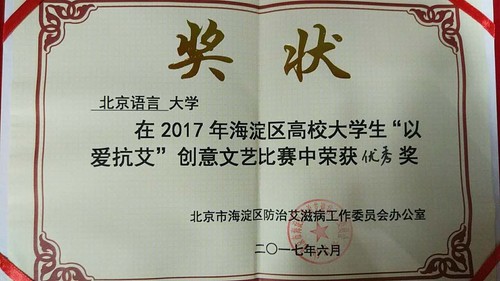 奖状
北京语言 大学
在2017年海淀区高校大学生“以
爱抗艾”创意文艺比赛中荣获 优秀 奖
北京市海淀区防治艾滋病工作委员会办公室
二〇一七年六月